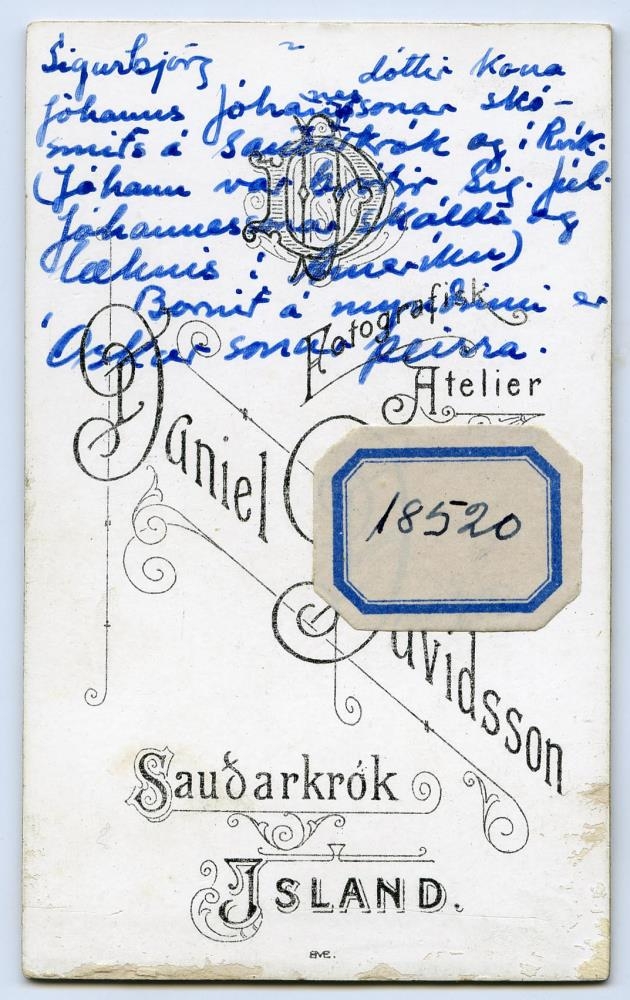 Sigurbjörg ~ dóttir kona
Jóhanns Jóhannessonar skó-
smiðs á Sauðárkrók og í Rvík.
(Jóhann var bróðir Sig. Júl.
Jóhannessonar skálds og
læknis í Ameríku)
Barnið á myndinni er
Áskur sonur þeirra.
Fotografisk
Atelier
Daniel
18520
Davidsson
Sauðarkrók
ISLAND.